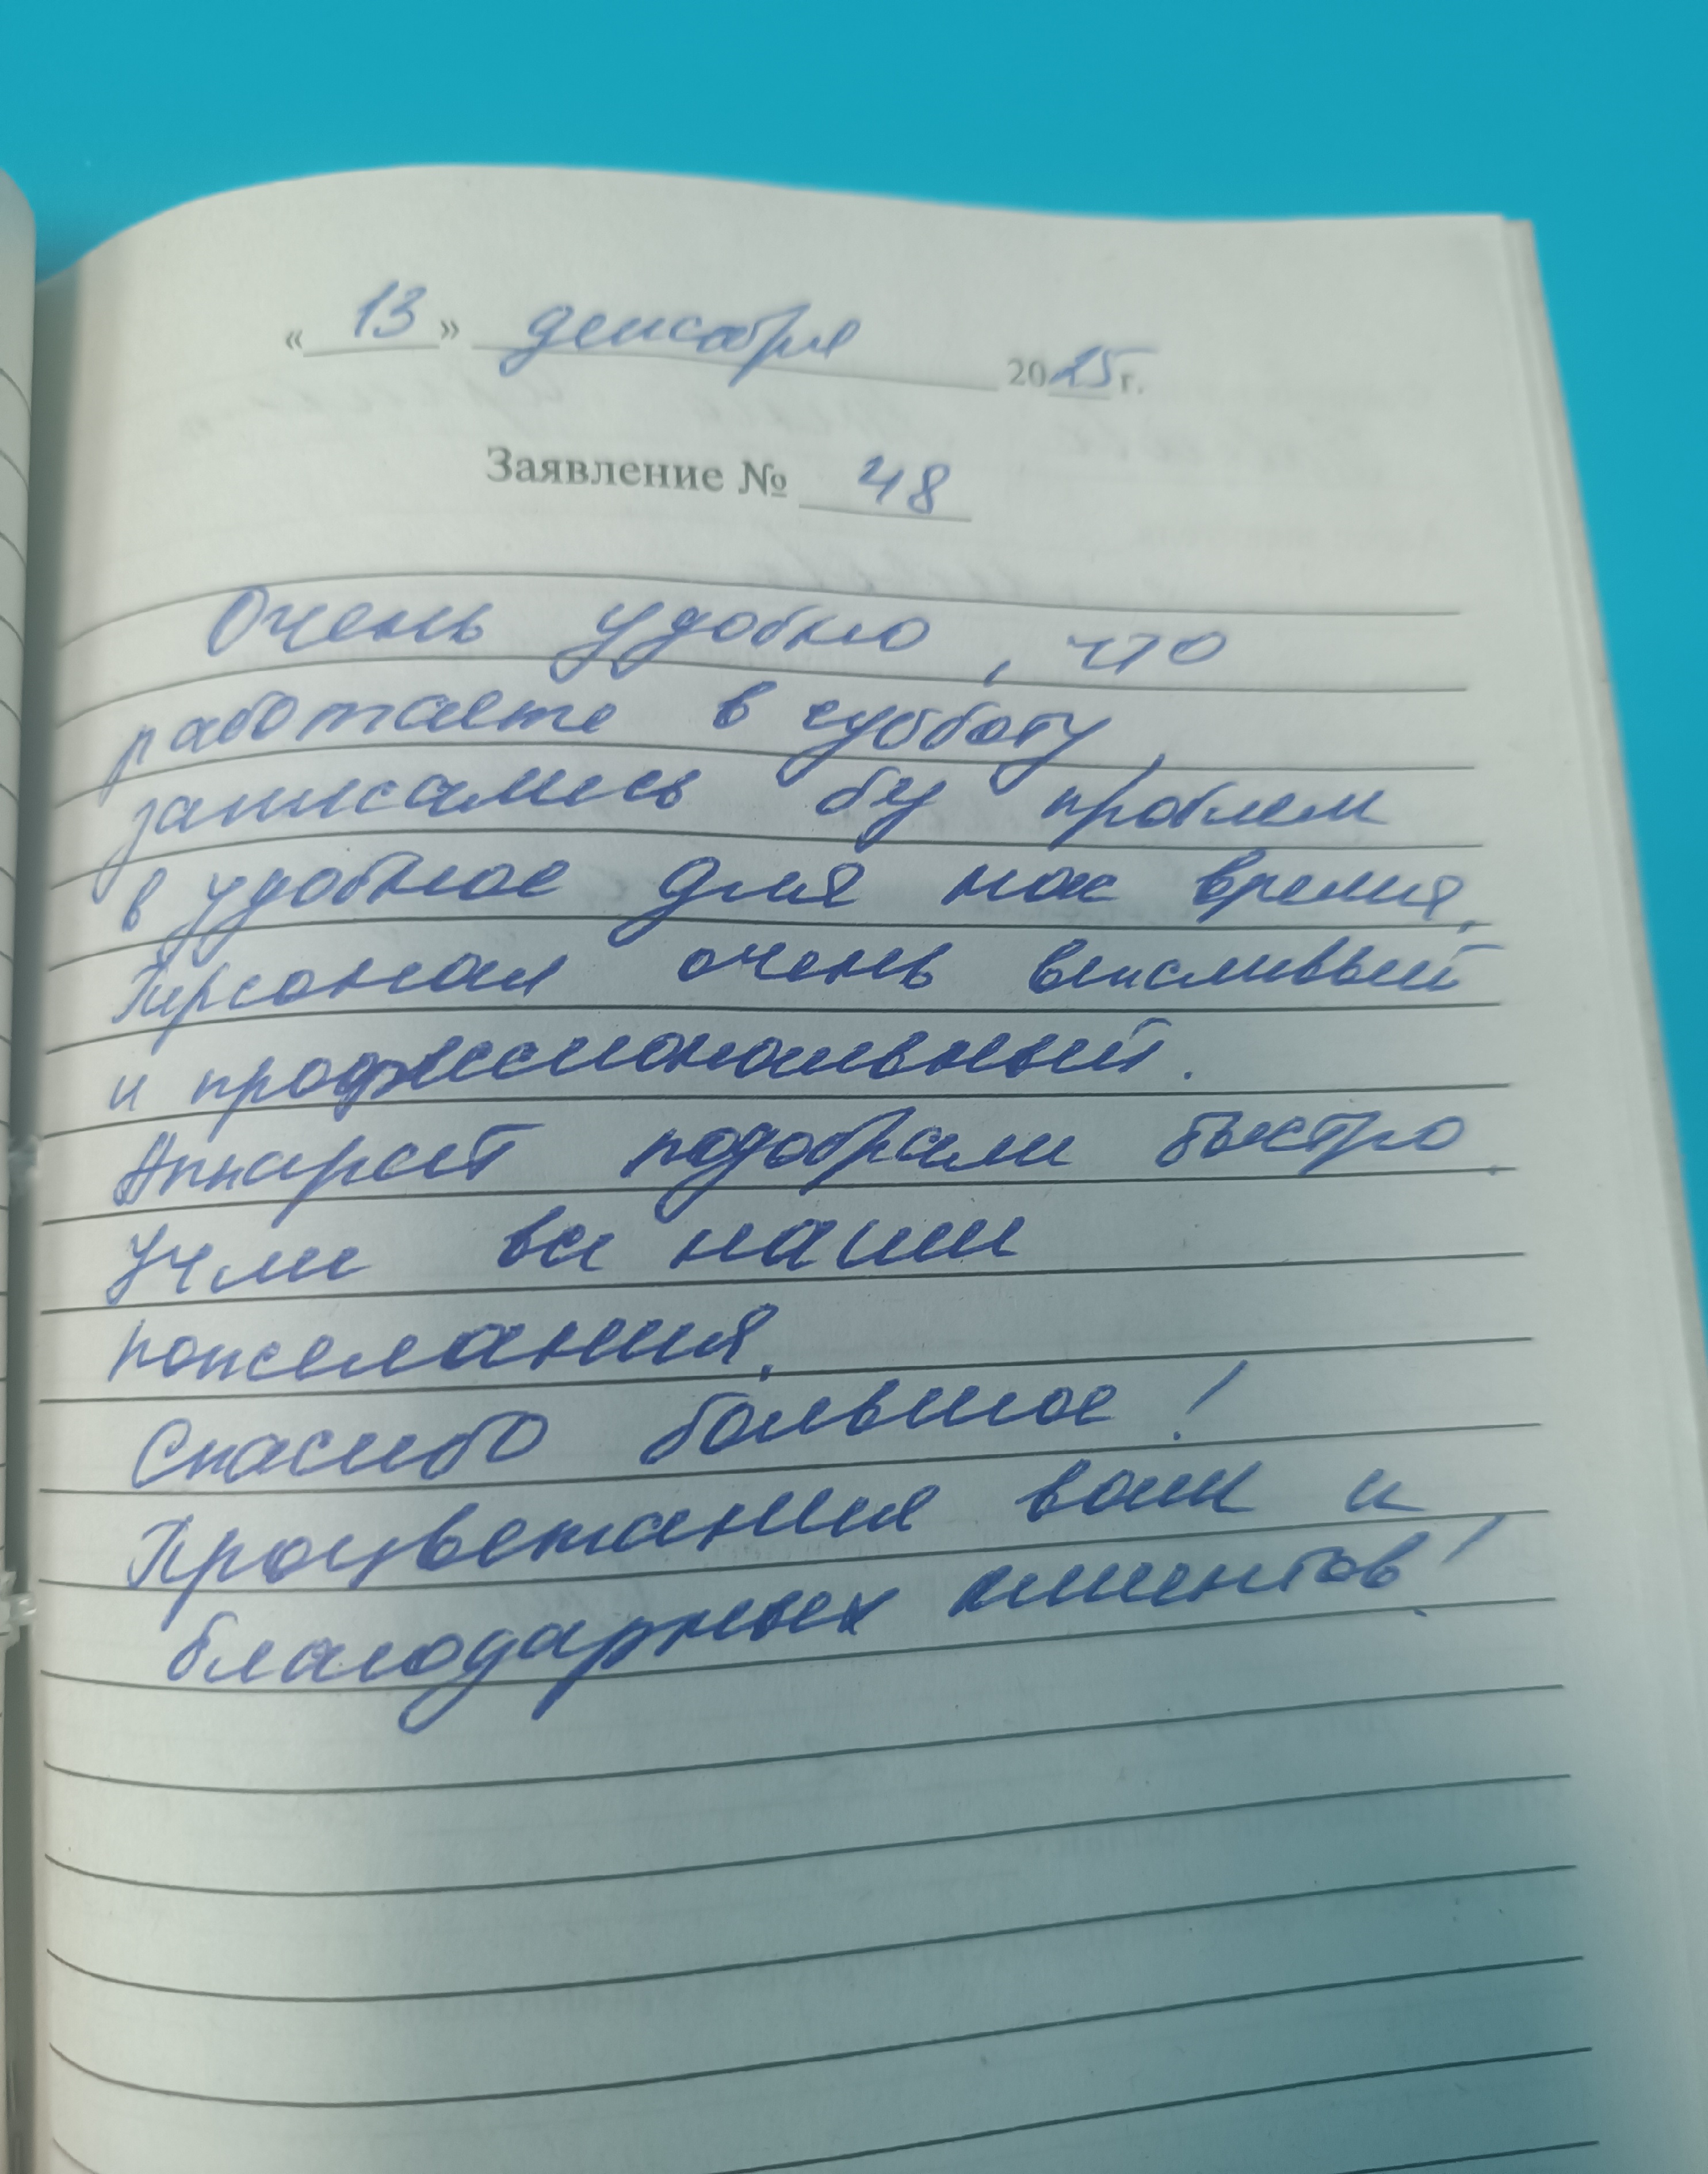 « 13 » декабря 2025 г.
Заявление № 48
Очень удобно, что
работаете в субботу,
записались без проблем
в удобное для нас время.
Персонал очень вежливый
и профессиональный.
Аппарат подобрали быстро.
Учли все наши
пожелания.
Спасибо большое!
Процветания вам и
благодарных клиентов!